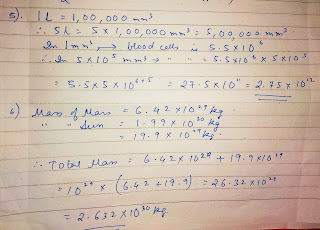 5). 1 L = 1,00,000 mm³
∴ 5L = 5 x 1,00,000 mm³ = 5,00,000 mm³
In 1 mm³, → blood cells is 5.5 x 10⁶
∴ In 5 x 10⁵ mm³ → " " = 5.5 x 10⁶ x 5 x 10⁵
= 5.5 x 5 x 10⁶⁺⁵ = 27.5 x 10¹¹ = 2.75 x 10¹²
6) Mass of Mars = 6.42 x 10²⁹ kg
" " Sun = 1.99 x 10³⁰ kg
= 19.9 x 10²⁹ kg.
∴ Total Mass = 6.42 x 10²⁹ + 19.9 x 10²⁹
= 10²⁹ x (6.42 + 19.9) = 26.32 x 10²⁹
= 2.632 x 10³⁰ kg